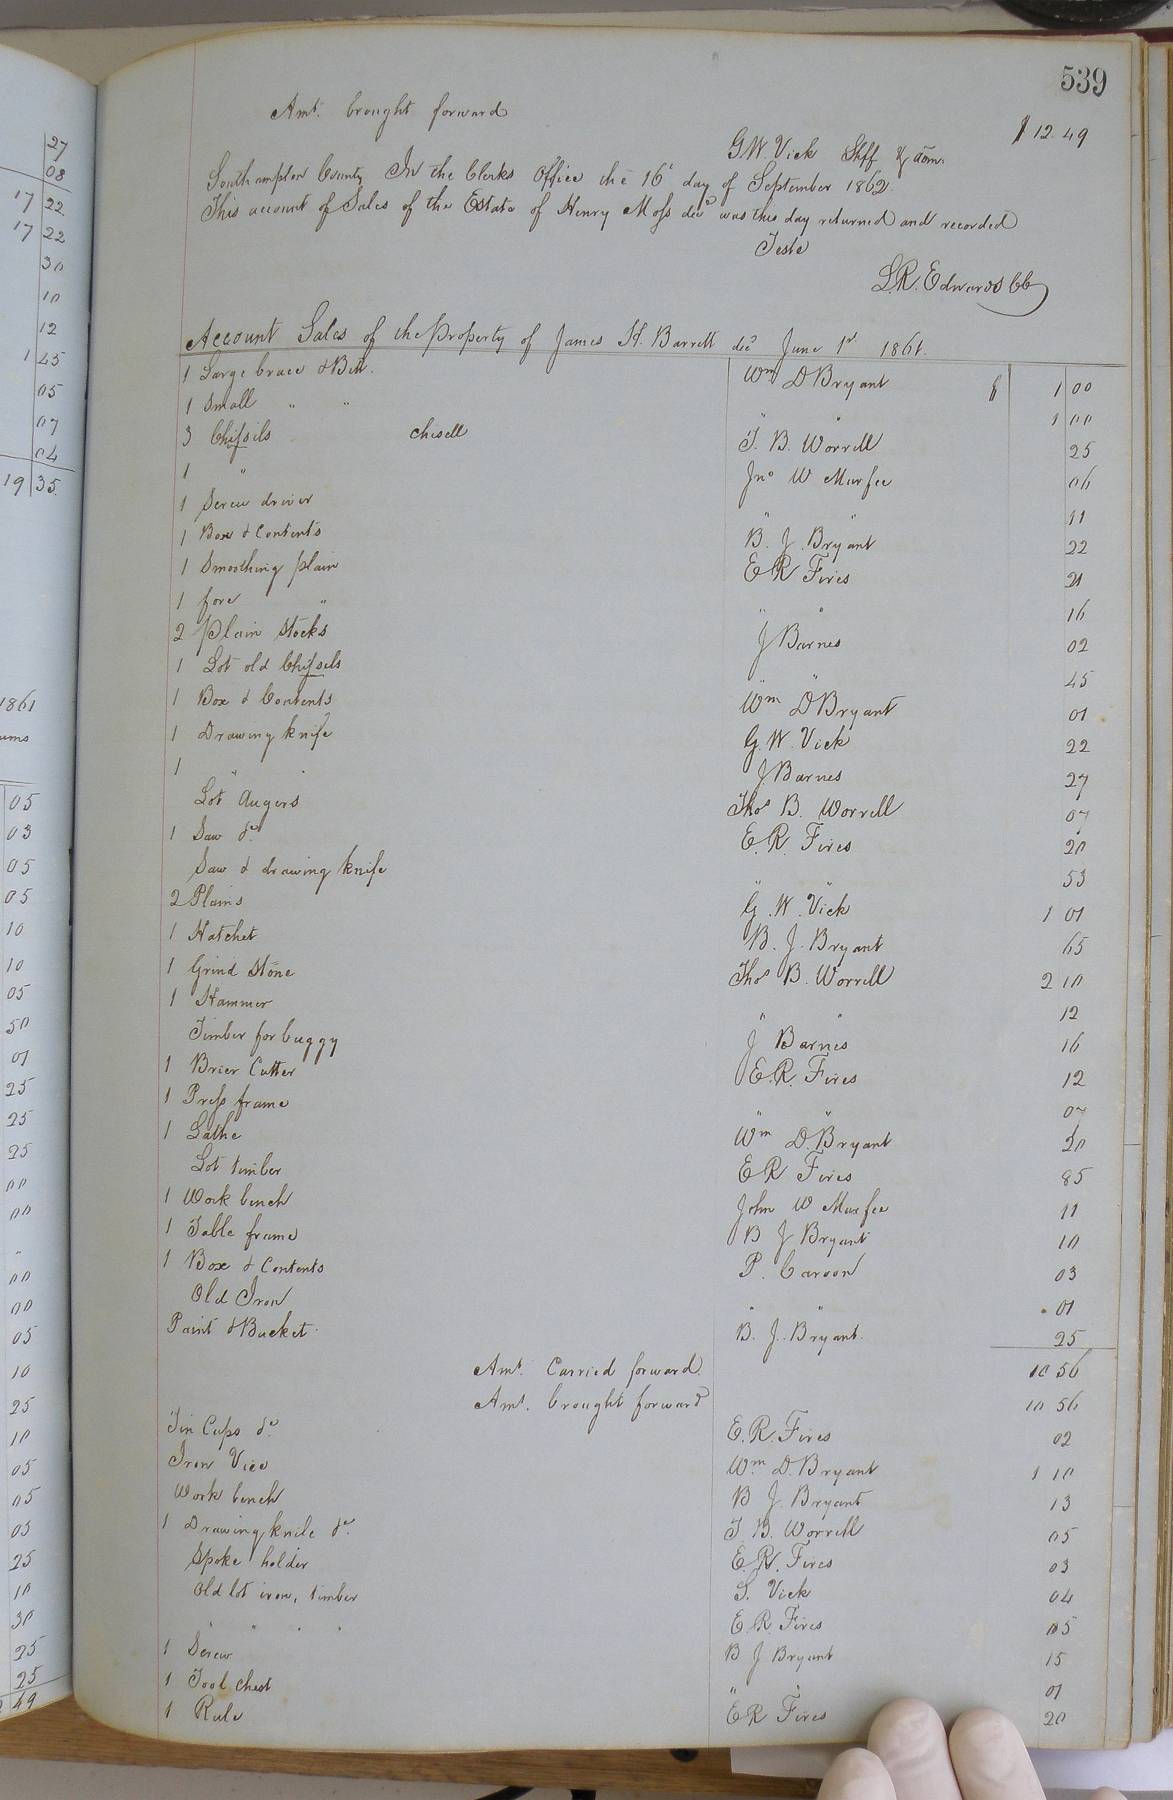 539
Amt. brought forward $12.49
G. W. Vick Shff & adm.
Southampton County In the Clerks Office the 16th day of September 1862.
This account of Sales of the Estate of Henry Moss decd was this day returned and recorded
Teste
L. R. Edwards CC
Account Sales of the Property of James H. Barrett decd June 1st 1861.
1 Large brace & Bitt. Wm D Bryant $ 1 00
1 Small " " " " 1 00
3 Chissils chisell T. B. Worrell 25
1 " Jno W Murfee 06
1 Screw driver " " 11
1 Box & Contents B. J. Bryant 22
1 Smoothing plain E R Fires 21
1 fore " " " 16
2 plain Stocks J Barnes 02
1 Lot old Chissels " " 45
1 Box & Contents Wm D Bryant 01
1 Drawing knife G. W. Vick 22
1 " " J Barnes 27
Lot Augers Thos B. Worrell 07
1 Saw &c. E. R. Fires 20
Saw & drawing knife " " 53
2 Plains G. W. Vick 1 01
1 Hatchet B. J. Bryant 65
1 Grind Stone Thos B. Worrell 2 10
1 Hammer " " 12
Timber for buggy J Barnes 16
1 Brier Cutter E. R. Fires 12
1 Press frame " " 07
1 Lathe Wm D. Bryant 20
Lot timber E R Fires 85
1 Work bench John W Murfee 11
1 Table frame B J Bryant 10
1 Box & Contents P. Caroon 03
Old Iron " " 01
Paint & Bucket. B. J. Bryant. 25
Amt. Carried forward. 10 56
Amt. brought forward 10 56
Tin Cups &c. E. R. Fires 02
Iron Vice Wm D. Bryant 1 10
Work bench B J. Bryant 13
1 Drawing knife &c. T B. Worrell 05
Spoke holder E. R. Fires 03
Old lot iron, timber S. Vick 04
" " " " E. R. Fires 05
1 Screw B J Bryant 15
1 Tool chest " " 01
1 Rule E R Fires 20